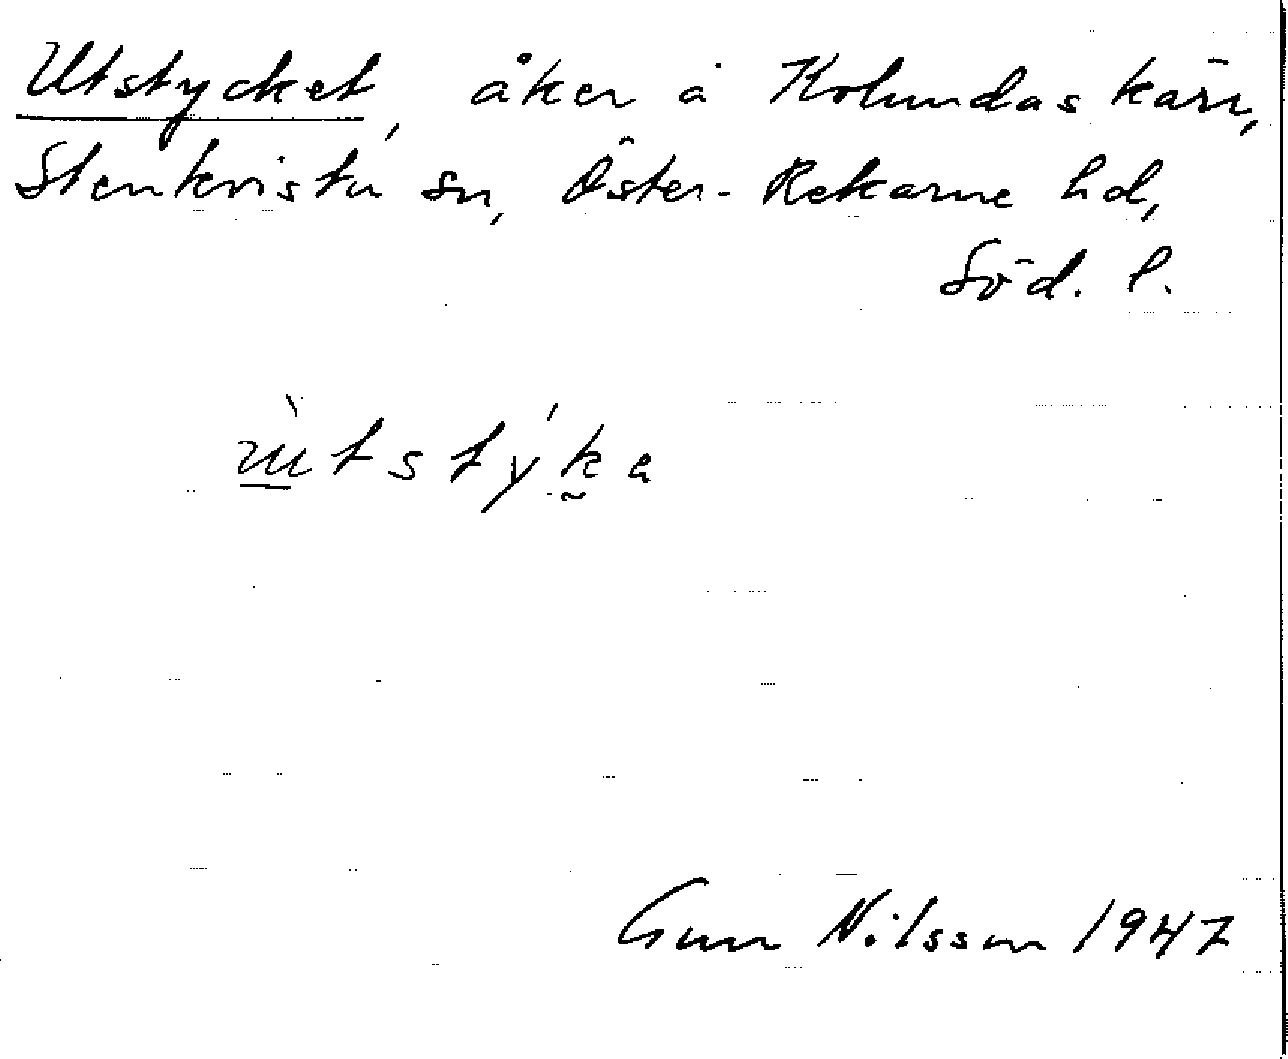 Utstycket, åker å Kolundas kärr,
Stenkvista sn, Öster-Rekarne hd,
Söd. l.
ùtstýka
Gun Nilsson 1947